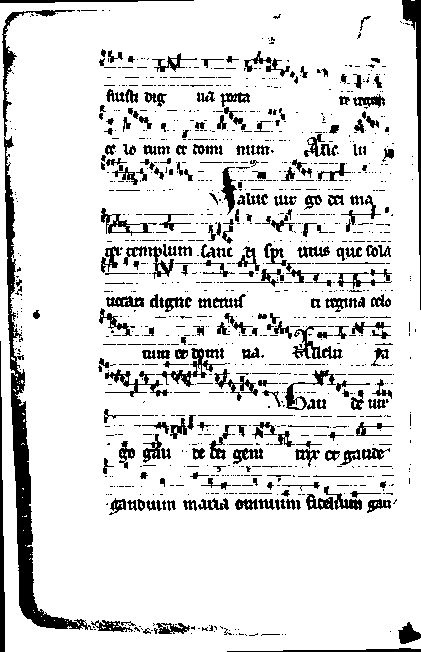 fuisti dig na porta re regem
ce lo rum et domi num. Alle lu ya
Salue uir go dei ma
ter templum sanc ti spi ritus que sola
uocari digne meruis ti regina celo
rum et domi na. Allelu ya
Gau de uir
go gau de dei geni trix et gaude
gaudium maria omnium fidelium gau